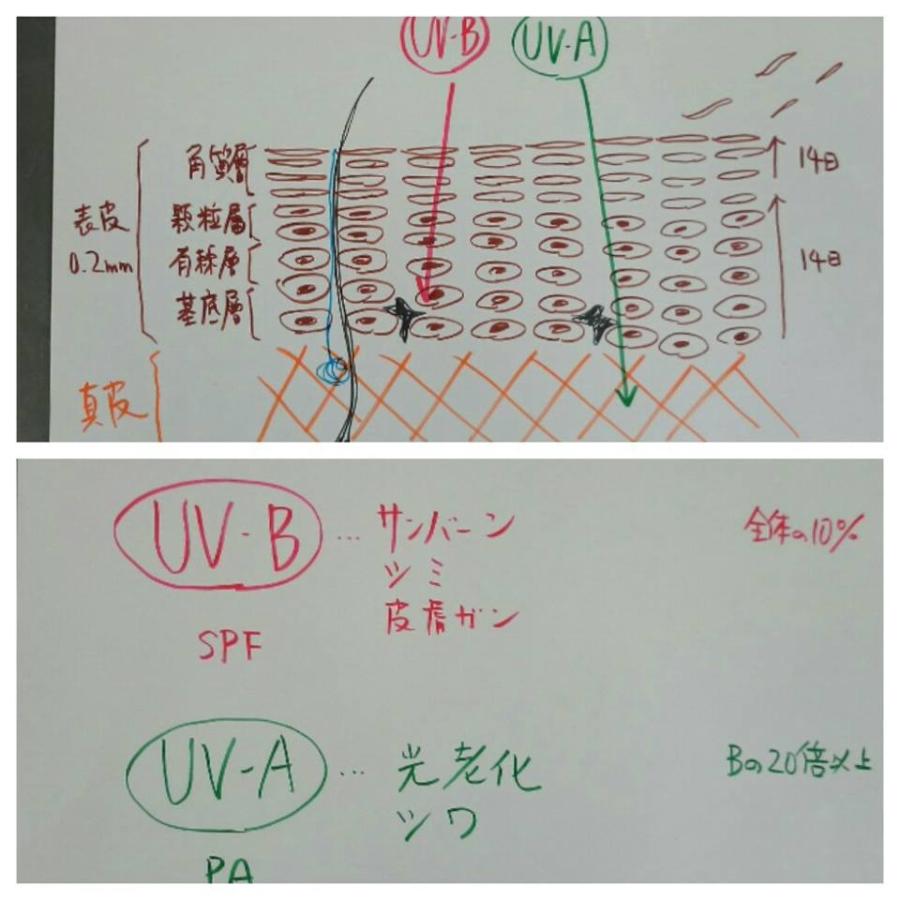 UV-B UV-A
角質層
14日
顆粒層
表皮
0.2mm
有棘層
14日
基底層
真皮
UV-B … サンバーン 全体の10%
シミ
皮膚ガン
SPF
UV-A … 光老化 Bの20倍以上
シワ
PA